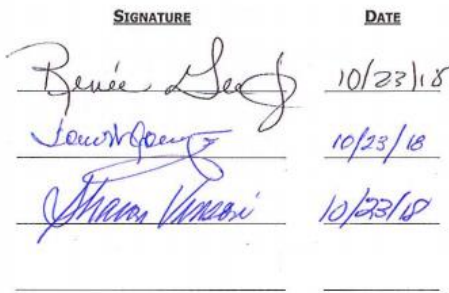 SIGNATURE DATE
Renée 10/23/18
10/23/18
Sharon Vinsoni 10/23/18